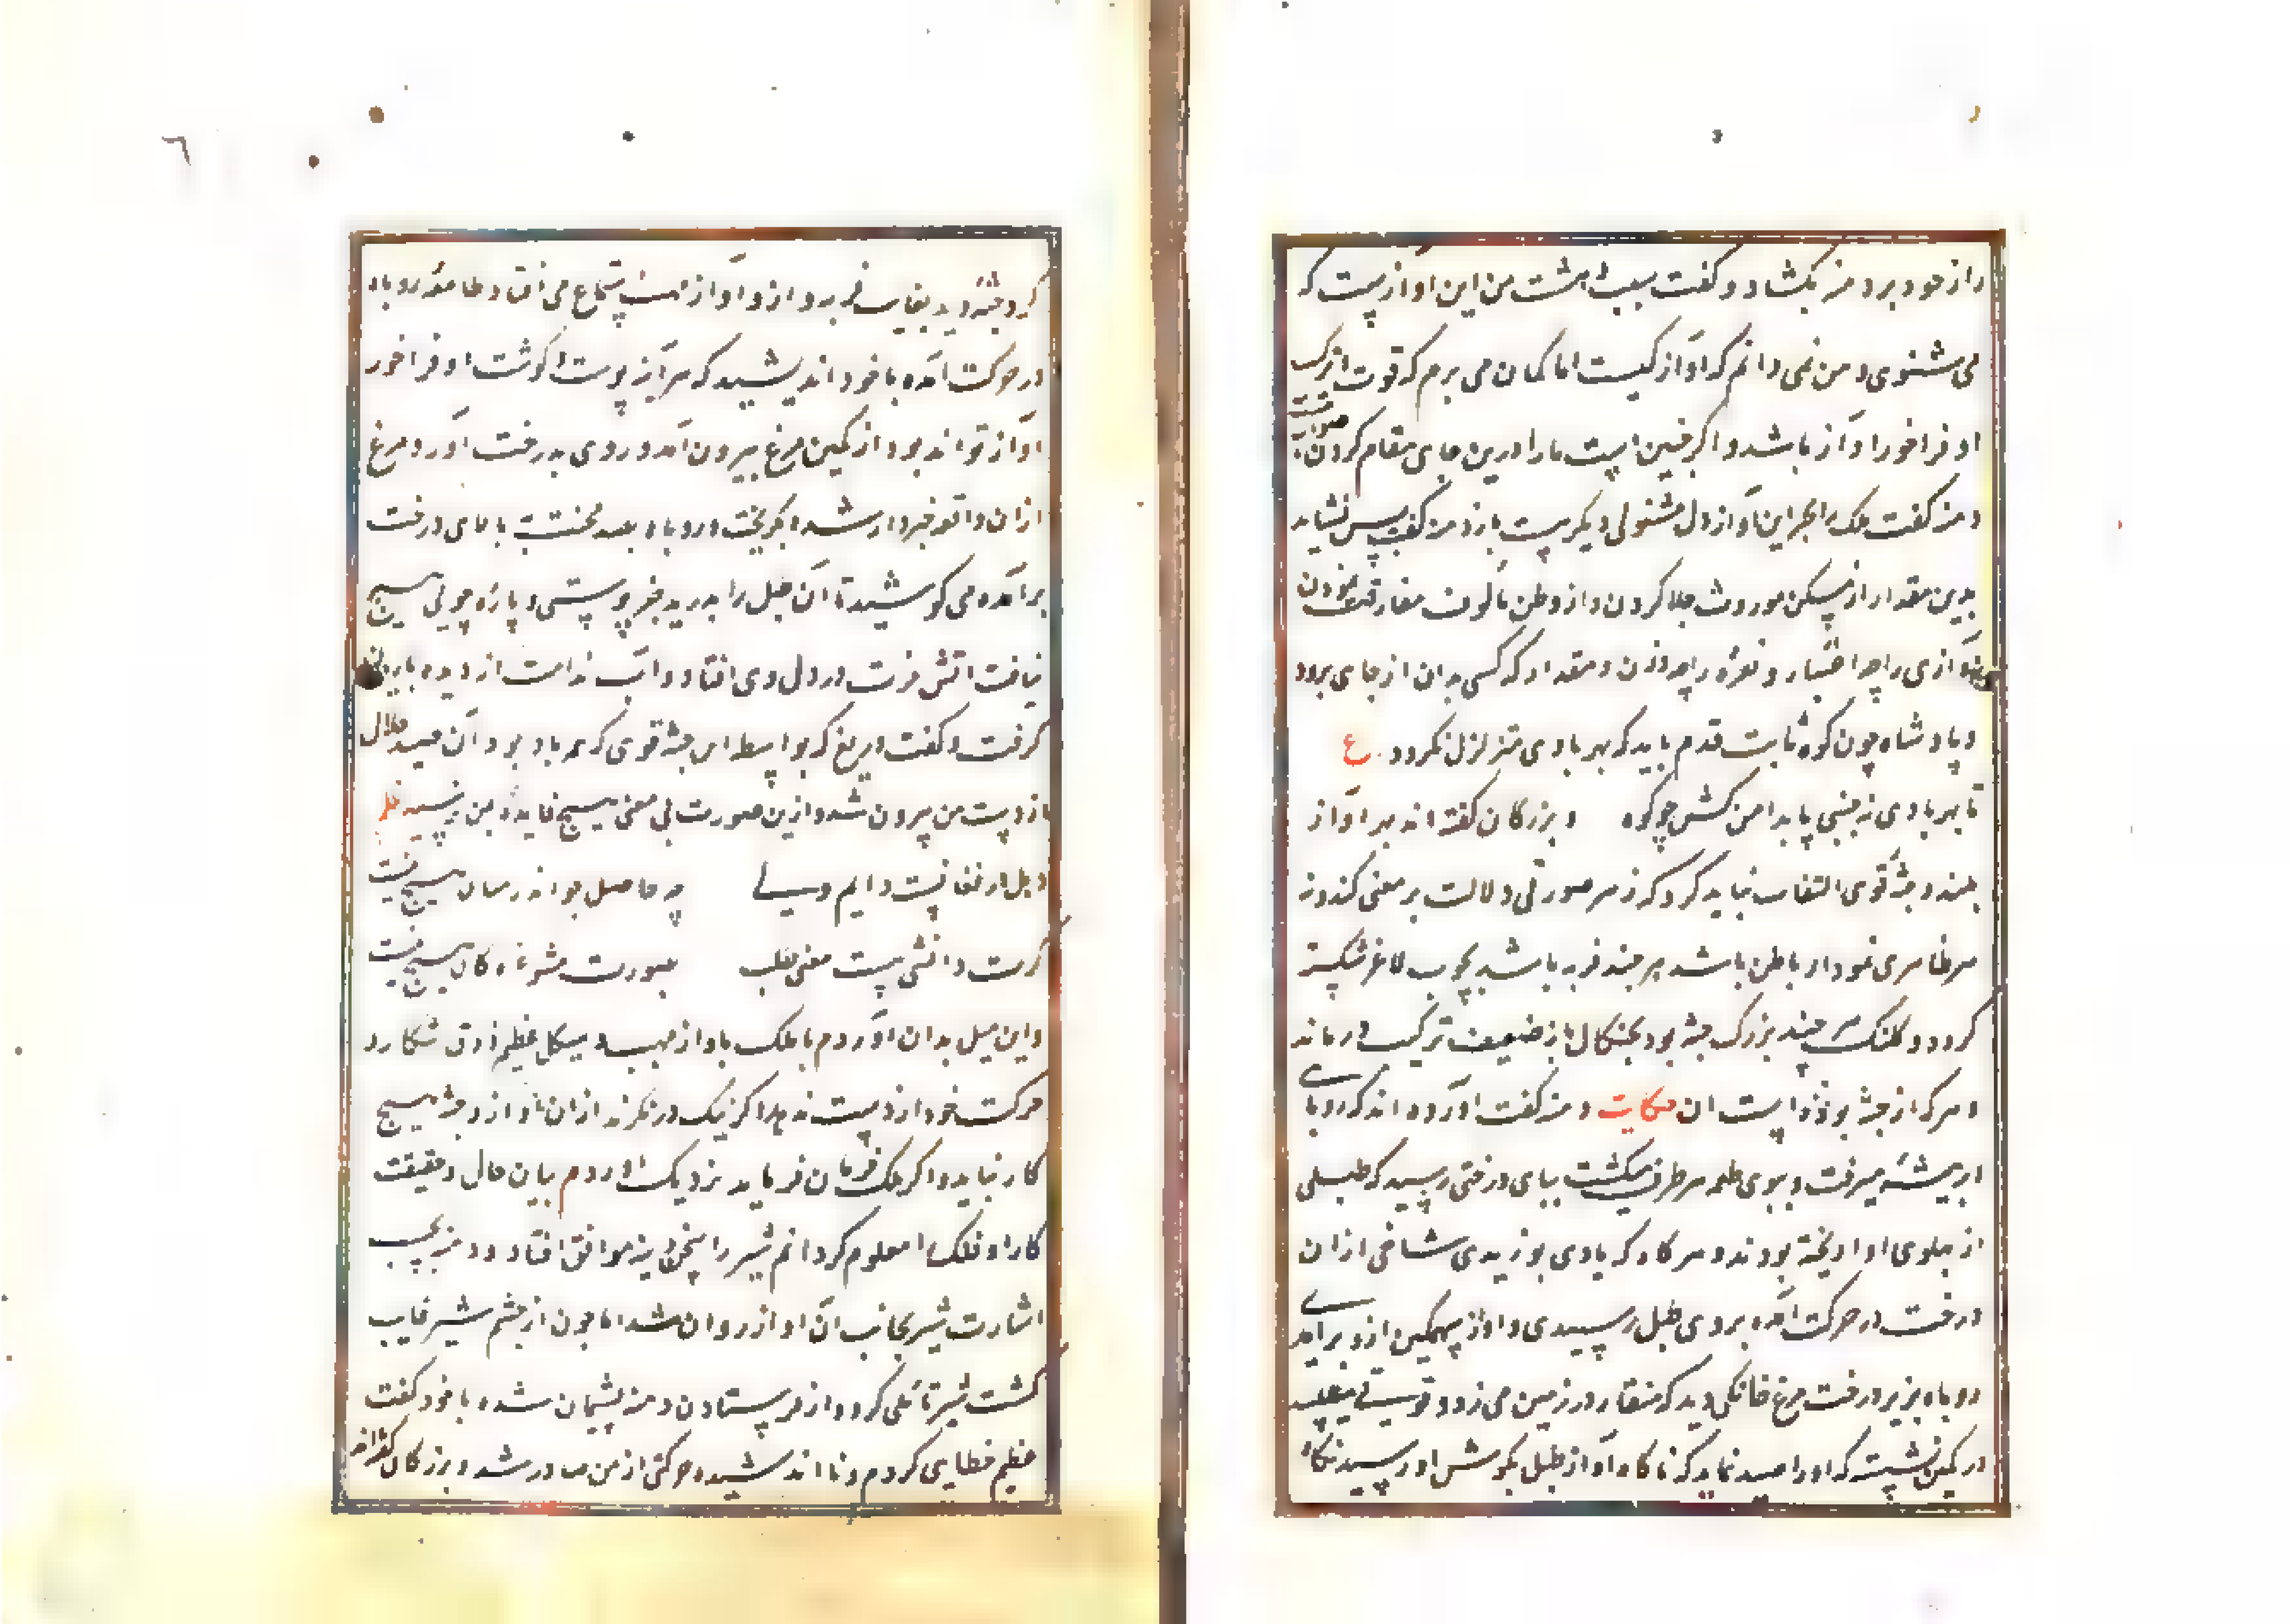 را از خود برد دمنه بکشاد و کفت سبب دهشت من این آوازیست که
می شنوی و من نمی دانم که آواز کیست اما کمان می برم که قوت و ترکیب
او فراخور آواز باشد و اکر چنین است ما را درین جای مقام کردن صواب نیست
دمنه کفت ملک را بجز این آواز دل مشغولی دیکر هست باز دمنه کفت پس نشاید
بدین مقدار از مسکن موروث جلا کردن و از وطن مألوف مفارقت نمودن
و آوازی را چه اعتبار و نعره را چه وزن و مقدار که کسی بدان از جای برود
و پادشاه چون کوه ثابت قدم باید که بهر بادی متزلزل نکردد ع
تا بهر بادی نجنبی پا بدامن کش چو کوه و بزرکان کفته اند بهر آواز
بلند و جثه قوی التفات نباید کرد که نه هر صورتی دلالت بر معنی کند و نه
هر ظاهری نمودار باطن باشد هر چند فربه باشد بچوب لاغر شکسته
کردد و کلنک هر چند بزرک جثه بود بچنکال باز ضعیف ترکیب درماند
و هر که از جثه بزرک حکایت دمنه کفت آورده اند که روباهی
در بیشه میرفت و ببوی طعمه هر طرف میکشت بپای درختی رسید که طبلی
از پهلوی او آویخته بودند و هر کاه که بادی بوزیدی شاخی از ان
درخت در حرکت آمده بروی طبل رسیدی و آواز سهمکین ازو برآمدی
روباه بزیر درخت مرغ خانکی دید که منقار در زمین می زد و قوتی میطلبید
در کمین نشست که او را صید نماید که ناکاه آواز طبل بکوش او رسید نکاه
٦
کرد جثه دید بغایت فربه و ازو آواز مهیب استماع می افتاد طامعه روباه
در حرکت آمده با خود اندیشید که هر آینه پوست و کوشت او فراخور
آواز تواند بود از کمین مرغ بیرون آمد و روی بدرخت آورد مرغ
ازان واقعه خبردار شد و بکریخت و روباه بصد محنت بالای درخت
برآمده می کوشید تا آن طبل را بدرید جز پوستی و پاره چوبی هیچ
نیافت اتش حسرت در دل وی افتاد و آب ندامت از دیده باریدن
کرفت و کفت دریغ که بواسطه این جثه قوی که همه باد بود آن صید حلال
از دست من بیرون شد و ازین صورت بی معنی هیچ فایده بمن نرسید نظم
دهل در فغانست دایم ولی چه حاصل چو اندر میان هیچ نیست
کرت دانشی هست معنی طلب بصورت مشو غره کان هیچ نیست
و این مثل بدان آوردم تا ملک باواز مهیب و هیکل عظیم ذوق شکار و
حرکت خود از دست ندهد و اکر نیک درنکرند ازان آواز و جثه هیچ
کار نیاید و اکر ملک فرمان فرماید نزدیک او روم و بیان حال و حقیقت
کار او ملک را معلوم کردانم شیر را سخن دمنه موافق افتاد و دمنه بحسب
اشارت شیر بجانب آن آواز روان شد اما چون از چشم شیر غایب
کشت شیر تأملی کرد و از فرستادن دمنه پشیمان شده با خود کفت
عظیم خطایی کردم و نااندیشیده حرکتی از من صادر شد و بزرکان کفته اند